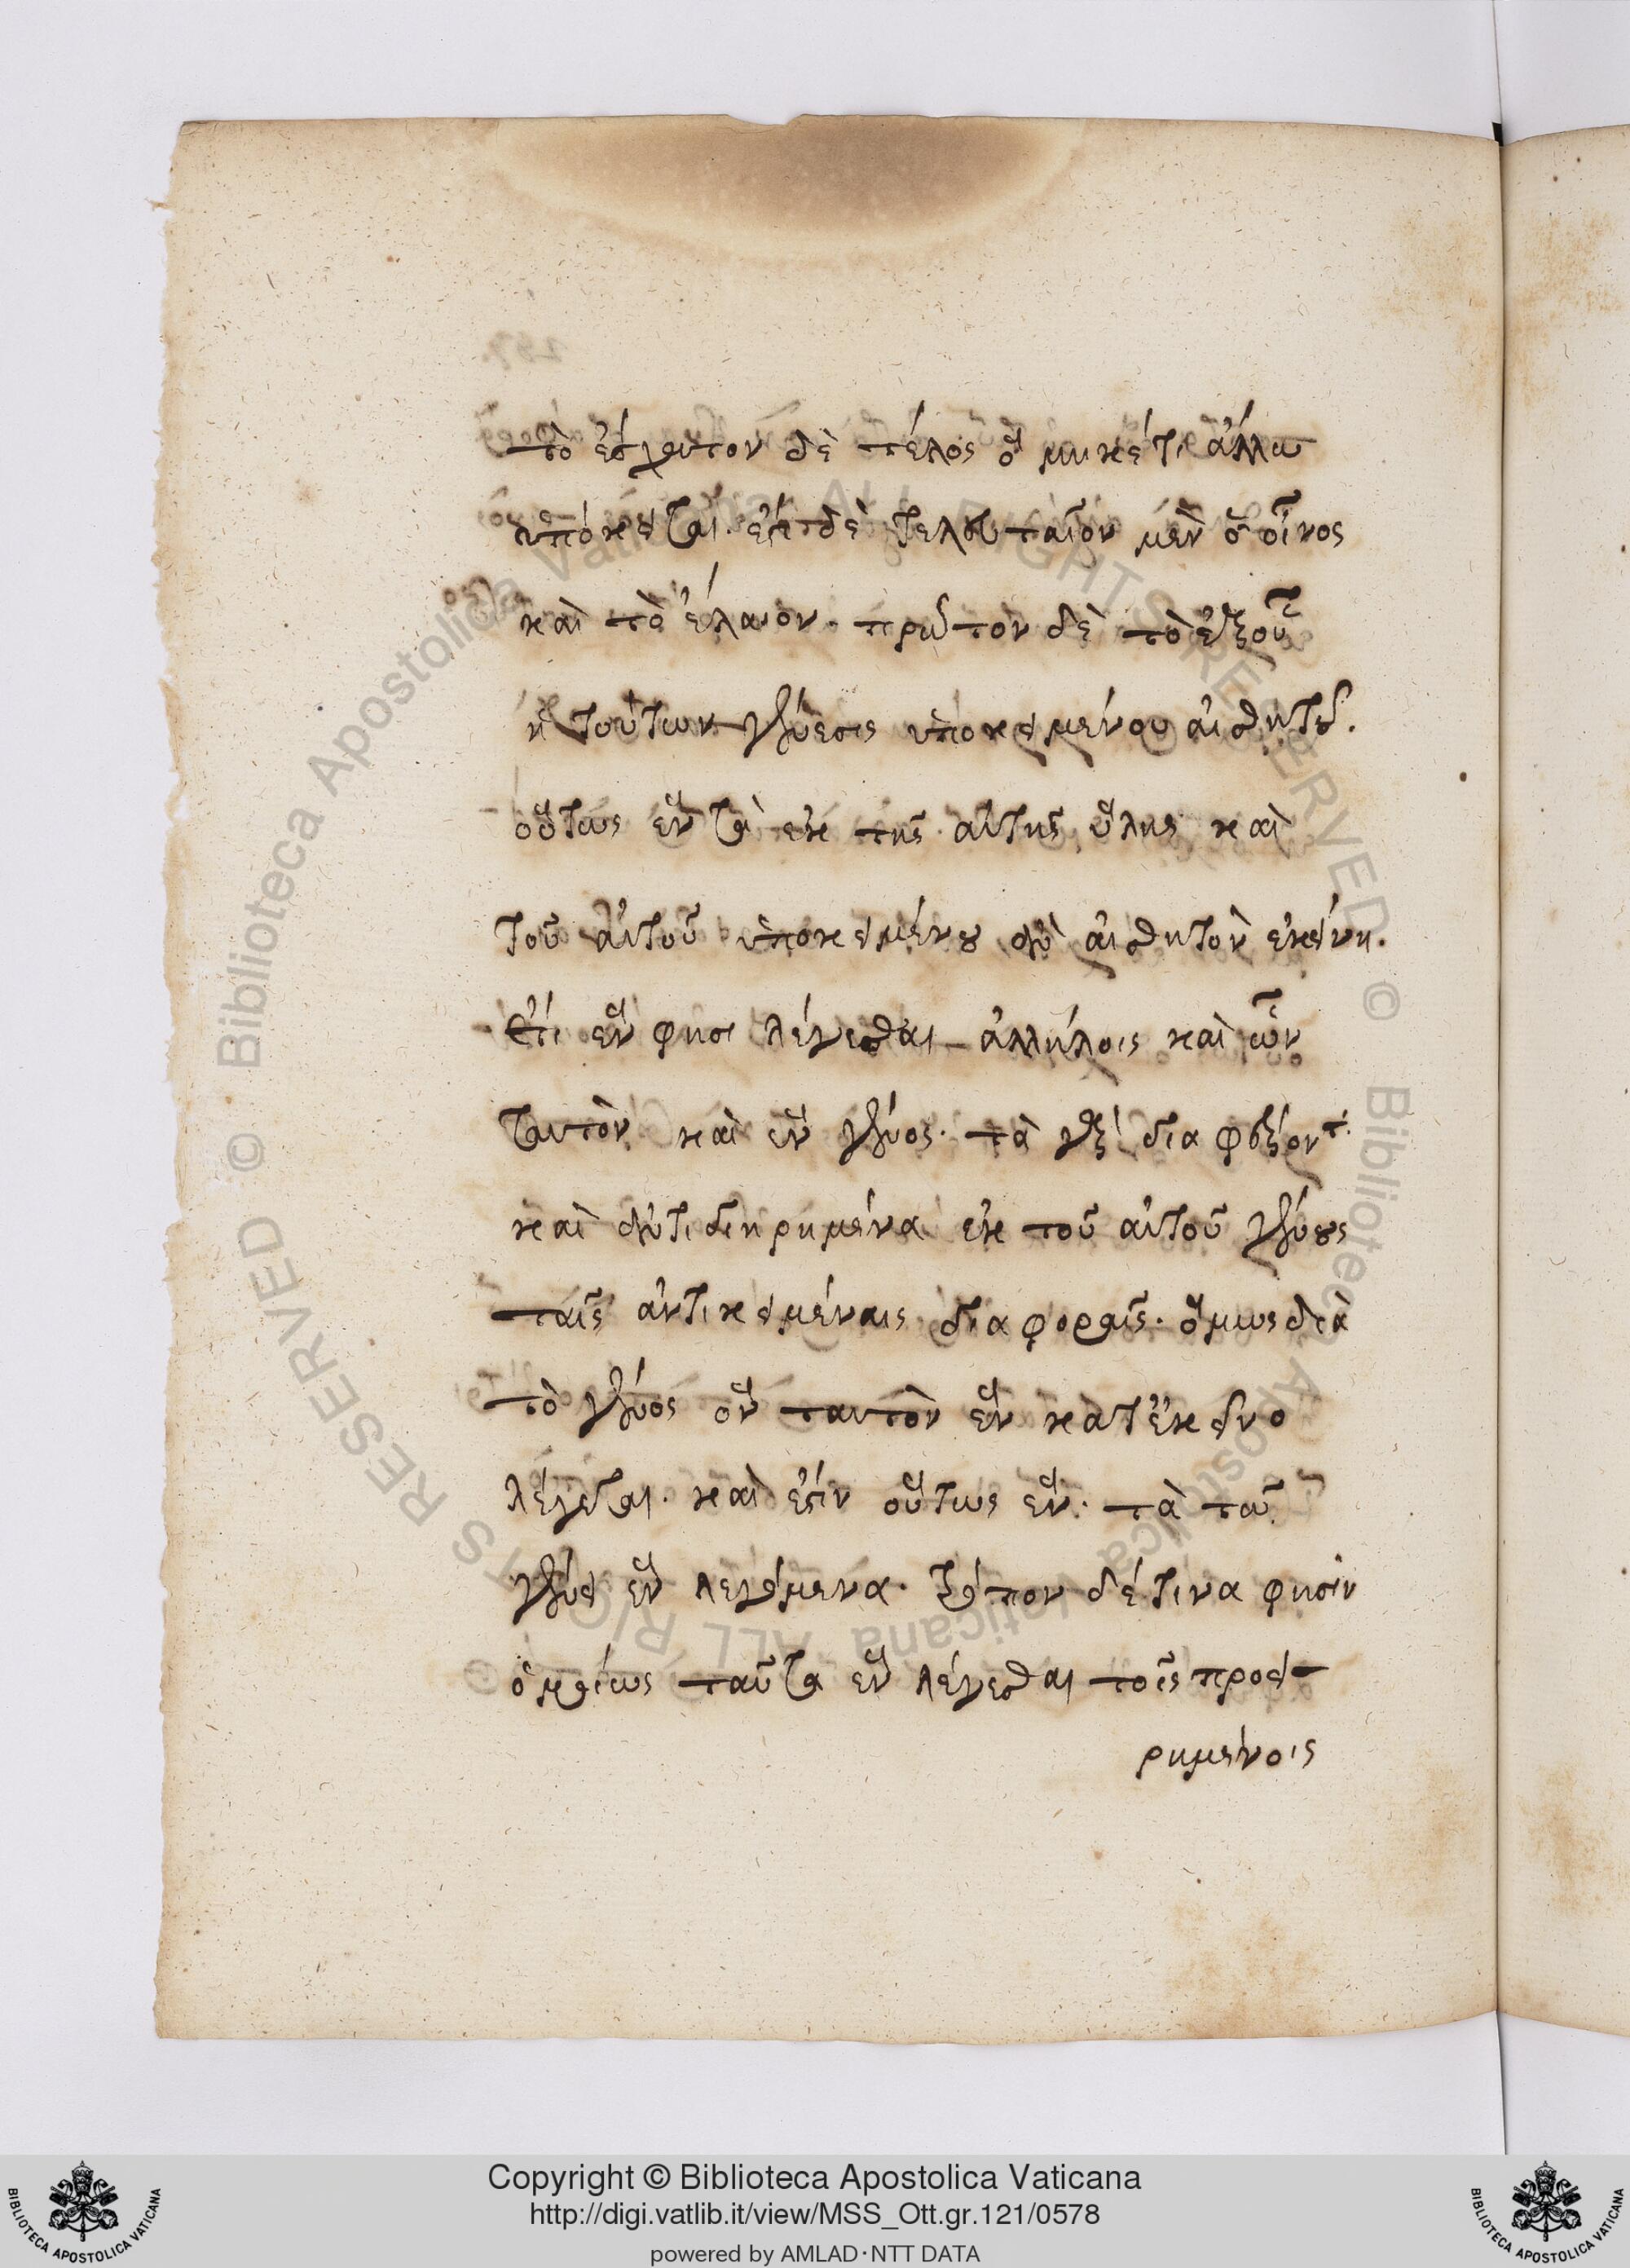 τὸ ἔσχατον δὲ τέλος ὃ μηκέτι ἄλλω
ὑπόκειται. ἔστι δὲ τελευταῖον μὲν ὁ οἶνος
καὶ τὸ ἔλαιον. πρῶτον δὲ τὸ ἐξ οὗ
ἡ τούτων γένεσις ὑποκειμένου αἰσθητοῦ.
οὕτως ἓν τὰ ἐκ τῆς αὐτῆς ὕλης καὶ
τοῦ αὐτοῦ ὑποκειμένου αἰσθητὸν ἐκείνη.
ἔτι ἕν φησι λέγεσθαι ἀλλήλοις καὶ ὧν
ταυτὸν καὶ ἓν γένος. τὰ γὰρ διαφέροντα
καὶ ἀντιδιῃρημένα ἐκ τοῦ αὐτοῦ γένους
ταῖς ἀντικειμέναις διαφοραῖς. ὅμως διὰ
τὸ γένος ὂν ταυτὸν ἓν κατ' ἐκεῖνο
λέγεται. καὶ ἔστιν οὕτως ἕν. τὰ
γένει ἓν λεγόμενα. τρόπον δέ τινα φησὶν
ὁμοίως ταῦτα ἓν λέγεσθαι τοῖς προει
ρημένοις
Copyright © Biblioteca Apostolica Vaticana
http://digi.vatlib.it/view/MSS_Ott.gr.121/0578
powered by AMLAD·NTT DATA
BIBLIOTECA APOSTOLICA VATICANA
BIBLIOTECA APOSTOLICA VATICANA
© Biblioteca Apostolica Vaticana ALL RIGHTS RESERVED
© Biblioteca Apostolica Vaticana ALL RIGHTS RESERVED